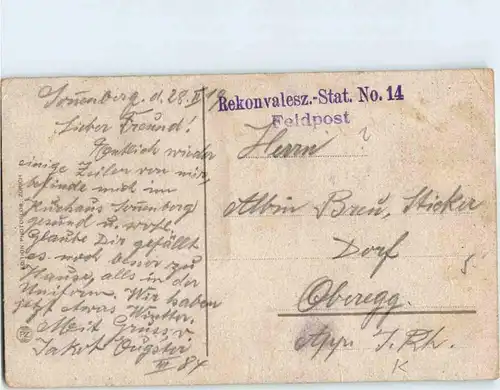 Sonnenberg, d. 28. II 19
Lieber Freund!
Endlich wieder
einige Zeilen von mir,
befinde mich im
Kurhaus Sonnenberg
gesund u. wohl.
Glaube Dir gefällt
es noch besser zu
Hause, als in der
Uniform. Wir haben
jetzt etwas Winter.
Mit Gruss v.
Jakob Eugster
VI 84
Rekonvalesz.-Stat. No. 14
Feldpost
Herrn
Albin Breu, Sticker
Dorf
Oberegg.
App. I. Rh.